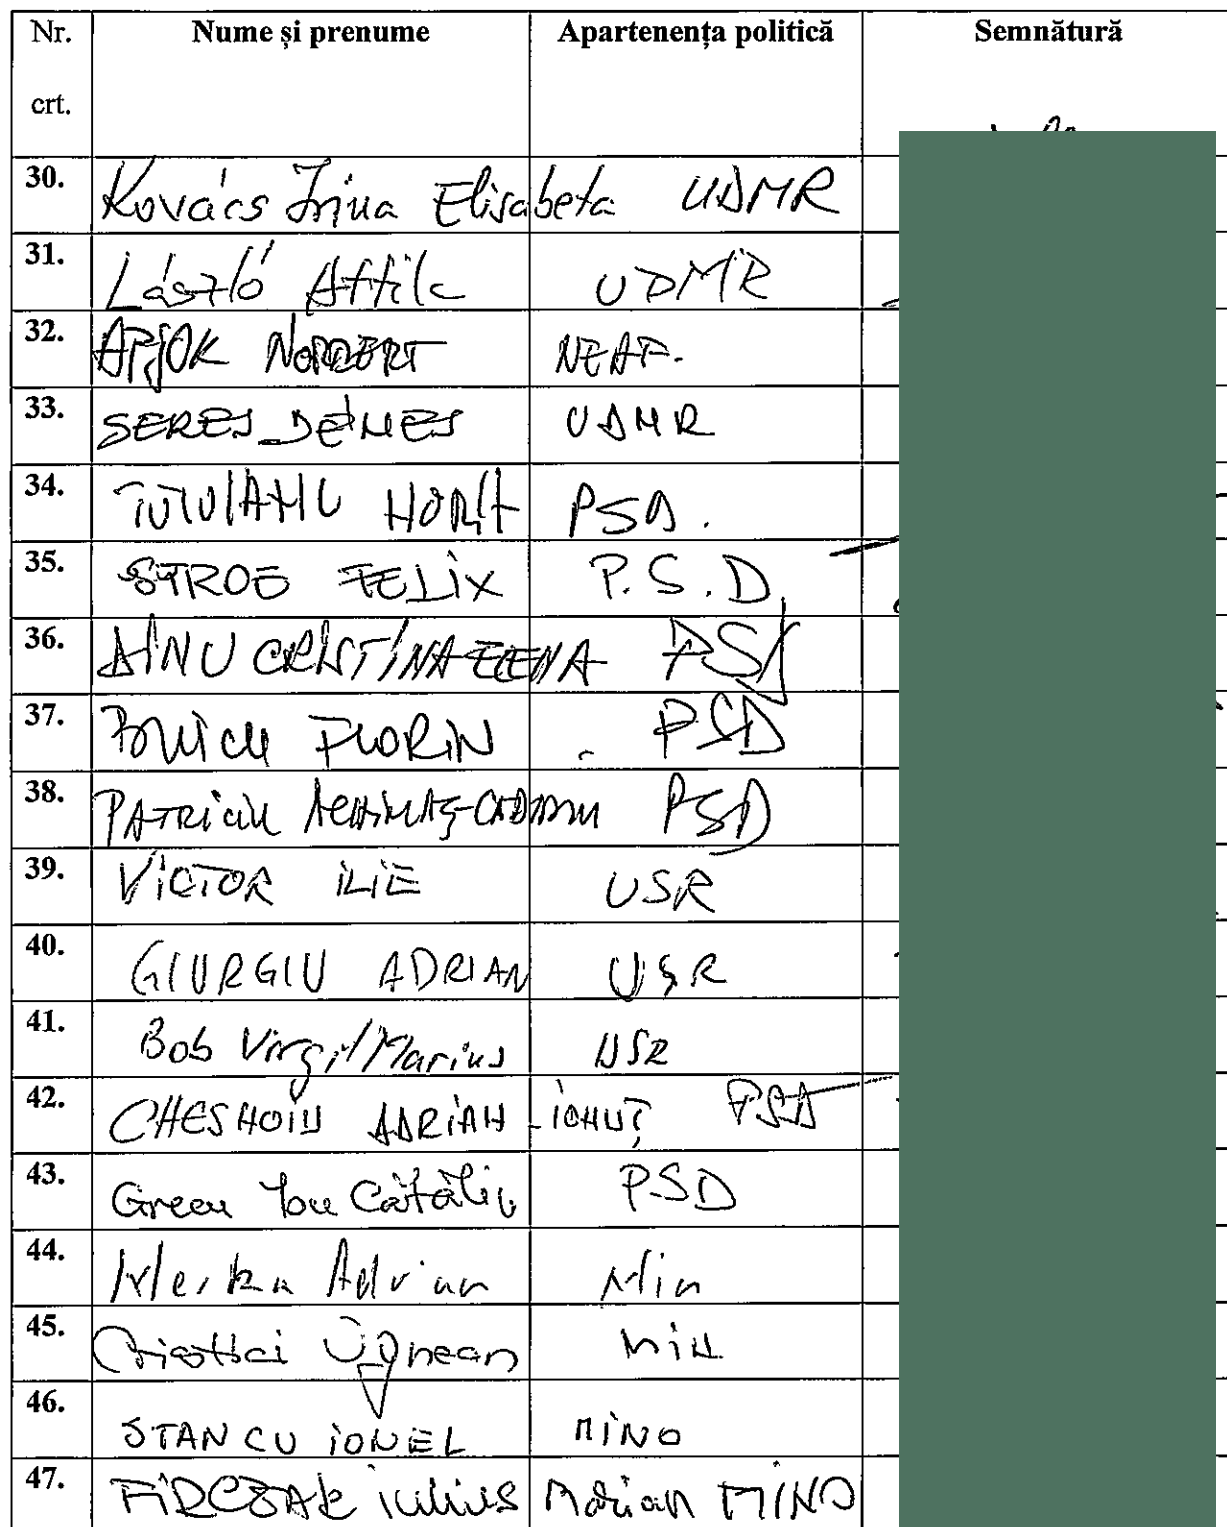 Nr. crt. Nume și prenume Apartenența politică Semnătură
30. Kovács Irina Elisabeta UDMR
31. László Attila UDMR
32. APJOK NORBERT NEAF.
33. SERES DÉNES UDMR
34. TUTUIANU HORIA PSD.
35. STROE FELIX P.S.D
36. DINU CRISTINA ELENA PSD
37. FLORIN PSD
38. PATRICIU ACHIMAȘ-CADARIU PSD
39. VICTOR ILIE USR
40. GIURGIU ADRIAN USR
41. Bob Virgil Marius USR
42. CHESNOIU ADRIAN-IONUȚ PSD
43. Grecu Ion Cătălin PSD
44. Merka Adrian Min
45. Ognean Min
46. STANCU IONEL MINO
47. FIRCZAK iulius Marian MINO